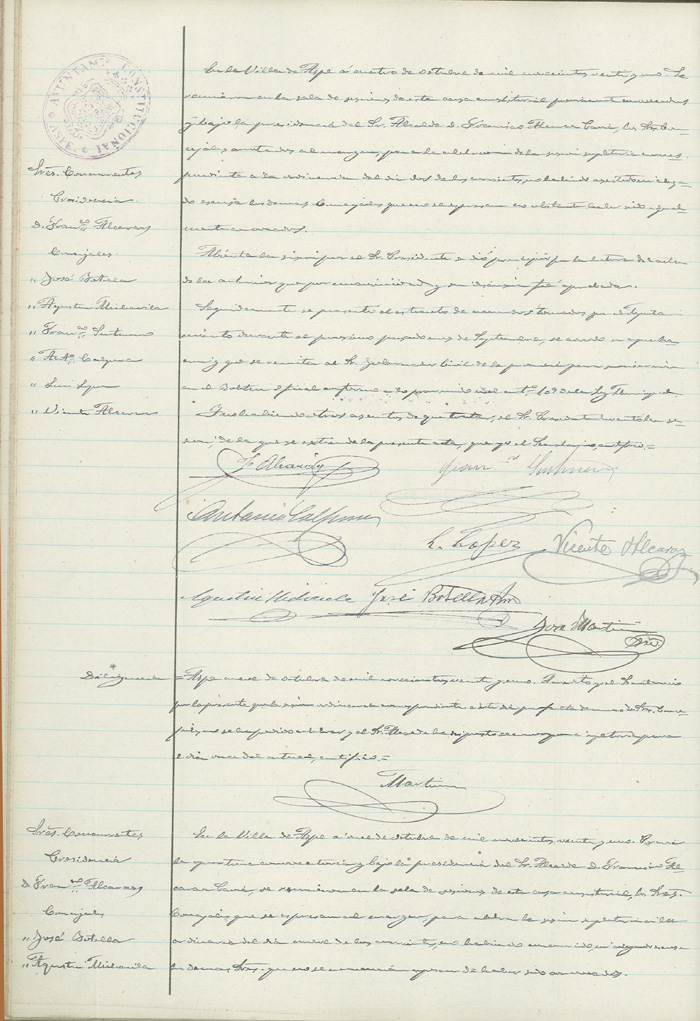 AYUNTAMTO CONSTITUCIONAL * ASPE *
En la Villa de Aspe á cuatro de octubre de mil novecientos veinte y uno. Se
reunieron en la sala de sesiones de esta casa consistorial previamente convocados
y bajo la presidencia del Sr. Alcalde D. Francisco Alcaraz Cañi, los Sres. Con-
cejales anotados al margen, para la celebracion de la sesion supletoria corres-
pondiente a la ordinaria del dia dos de los corrientes, no habiendo asistido
los demas Concejales que no se expresan no obstante haber sido igual-
mente convocados.
Sres. Concurrentes
Presidencia
D. Franco Alcaraz
Concejales
" José Botella
" Agustin Mira
" Franco
" Anto Calpena
" Luis Lopez
" Vicente Alcaraz
Abierta la sesion por el Sr. Presidente se dió principio por la lectura del acta
de la anterior que por unanimidad y sin discusion fué aprobada.
Seguidamente se presentó el extracto de acuerdos tomados por el Ayunta-
miento durante el proximo pasado mes de Septiembre, se acordó su aproba-
cion y que se remita al Sr. Gobernador Civil de la provincia para su insercion
en el Boletin oficial conforme a lo prevenido en el artº 109 de la Ley Municipal.
Y no habiendo otros asuntos de que tratar, el Sr. Presidente levantó la se-
sion, de la que se extiende la presente acta, que yo el Secretario, certifico.=
F. Alcaraz
Antonio Calpena
L. Lopez
Vicente Alcaraz
Agustin
José Botella
José Martin
Srio
Diligencia
= Aspe nueve de octubre de mil novecientos veinte y uno.
por la presente que la sesion ordinaria correspondiente a este dia por falta de numero de Sres. Conce-
jales, no se ha podido celebrar, y el Sr. Alcalde ha dispuesto se convoque a supletoria para
el dia once del actual, certifico.=
Martin
Sres. Concurrentes
Presidencia
D. Franco Alcaraz
Concejales
" José Botella
" Agustin
En la Villa de Aspe á once de octubre de mil novecientos veinte y uno. Previa
la oportuna convocatoria y bajo la presidencia del Sr. Alcalde D. Francisco Al-
caraz Cañi, se reunieron en la sala de sesiones de esta casa consistorial, los Sres.
Concejales que se expresan al margen, para celebrar la sesion supletoria a la
ordinaria del dia nueve de los corrientes, no habiendo concurrido
demas Sres. que no se mencionan apesar de haber sido convocados.